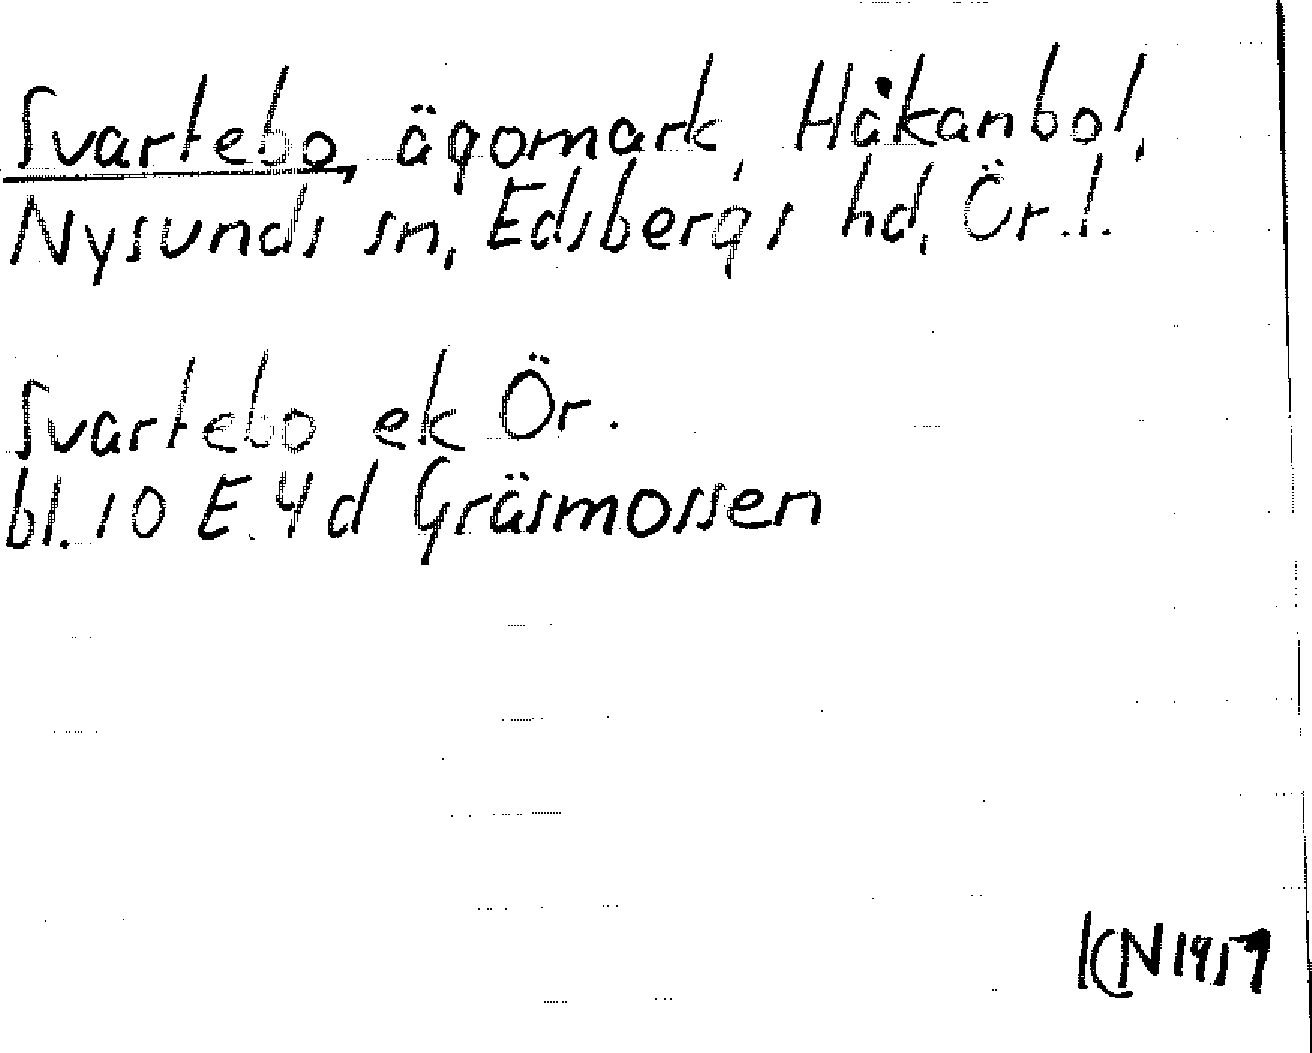 Svartebo, ägomark, Håkanbol,
Nysunds sn, Edsbergs hd, Ör.l.
Svartebo ek Ör.
bl. 10 E. 4 d Gräsmossen
KN 1957